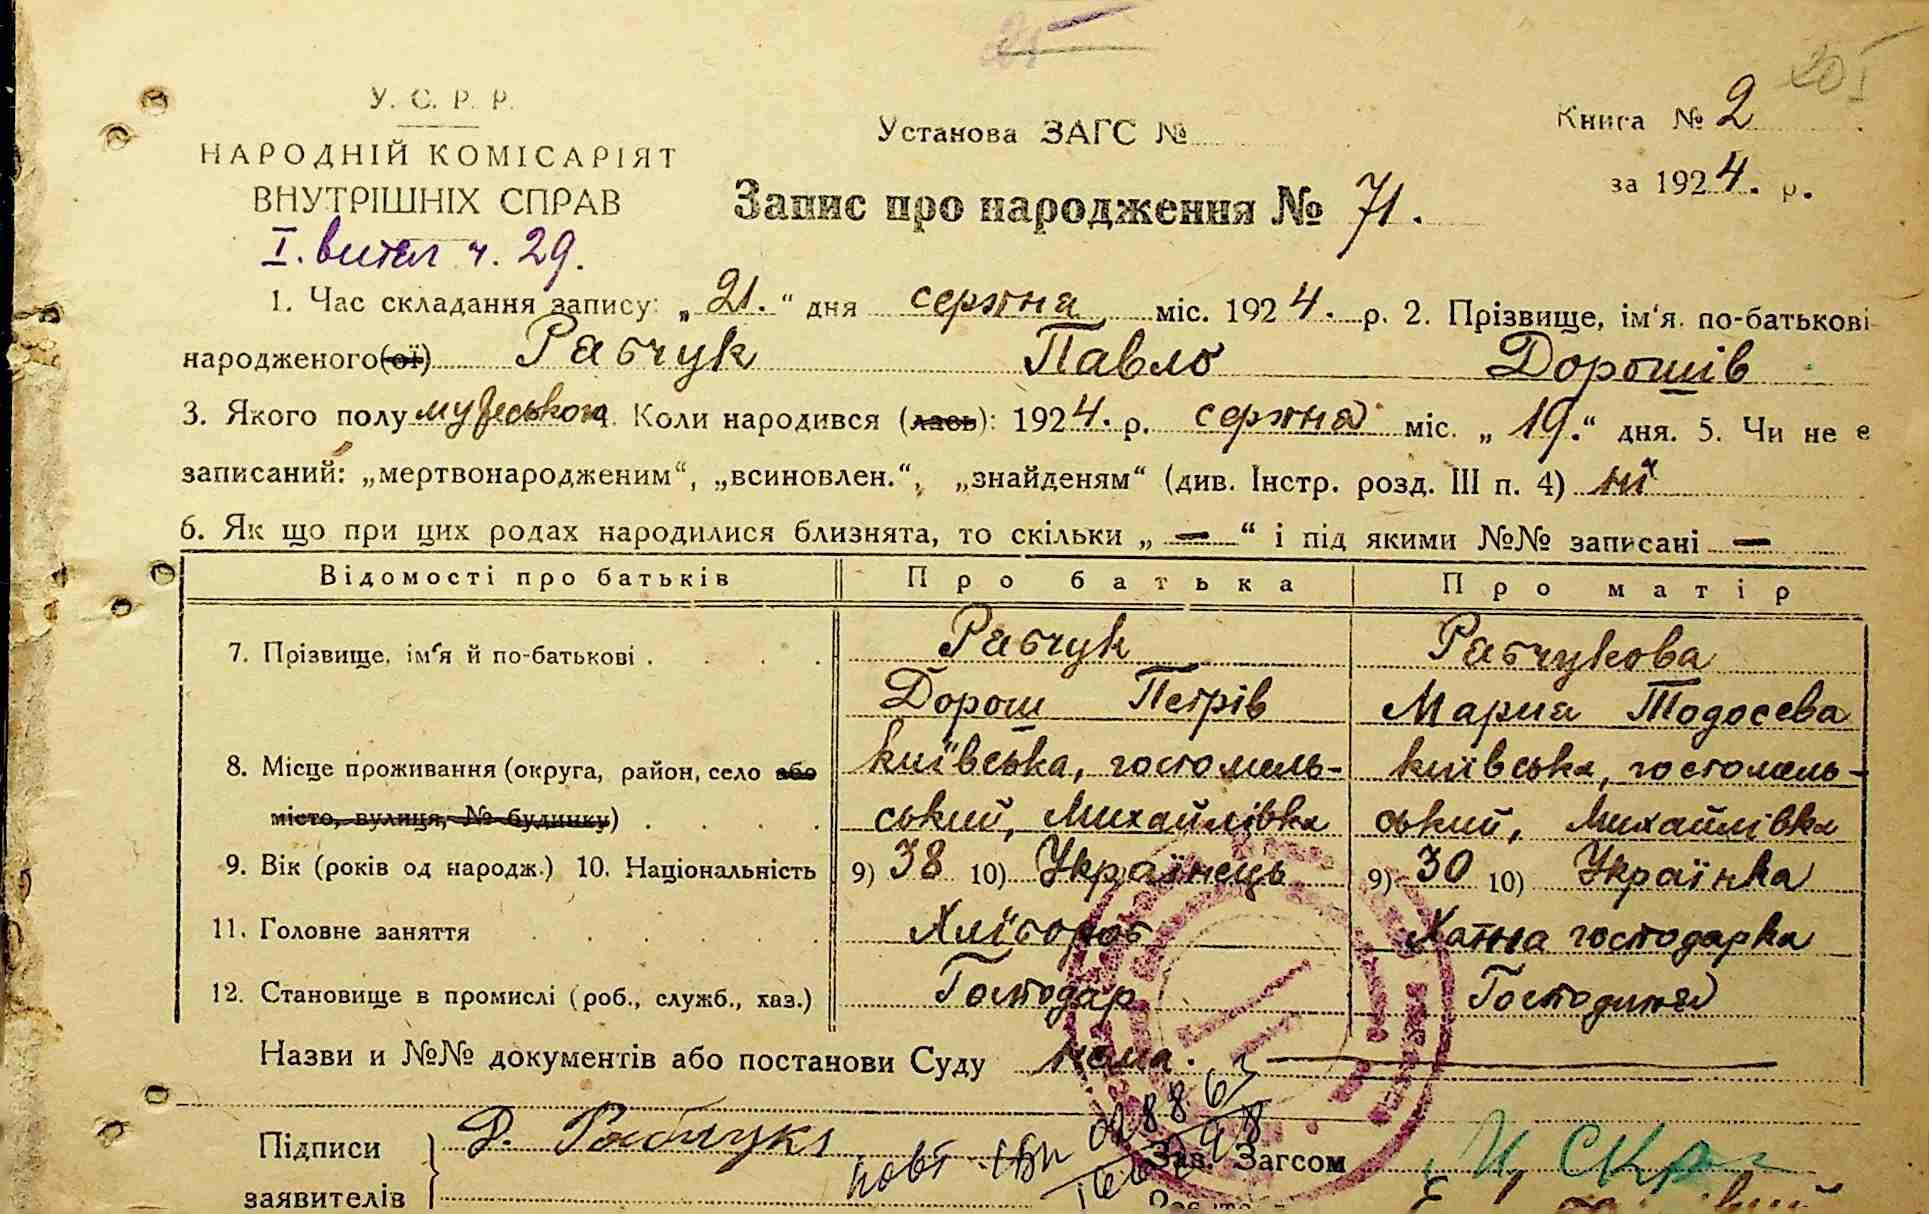 20
У. С. Р. Р.
НАРОДНІЙ КОМІСАРІЯТ
ВНУТРІШНІХ СПРАВ
Установа ЗАГС №
Книга № 2
за 1924. р.
Запис про народження № 71.
I. витяг ч. 29.
1. Час складання запису: „21.“ дня серпня міс. 1924. р. 2. Прізвище, ім'я, по-батькові
народженого(ої) Рабчук Павло Дорошів
3. Якого полу мужеського 4. Коли народився (лась): 1924. р. серпня міс. „19.“ дня. 5. Чи не є
записаний: „мертвонародженим“, „всиновлен.“, „знайденям“ (див. Інстр. розд. III п. 4) ні
6. Як що при цих родах народилися близнята, то скільки „—“ і під якими №№ записані —
Відомості про батьків Про батька Про матір
7. Прізвище, ім'я й по-батькові Рабчук Рабчукова
Дорош Петрів Мария Тодосєва
8. Місце проживання (округа, район, село або київська, гостомель- київська, гостомель-
місто, вулиця, № будинку) ський, Михайлівка ський, Михайлівка
9. Вік (років од народж.) 10. Національність 9) 38 10) Українець 9) 30 10) Українка
11. Головне заняття Хлібороб Хатна господарка
12. Становище в промислі (роб., служб., хаз.) Господар Господиня
Назви и №№ документів або постанови Суду нема.
Підписи Д. Рабчук Зав. Загсом
заявителів